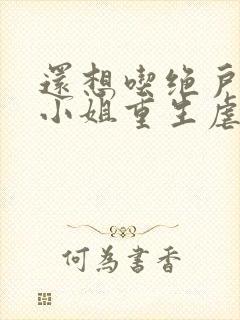 還想喫绝戶
小姐重生虐
何為書香